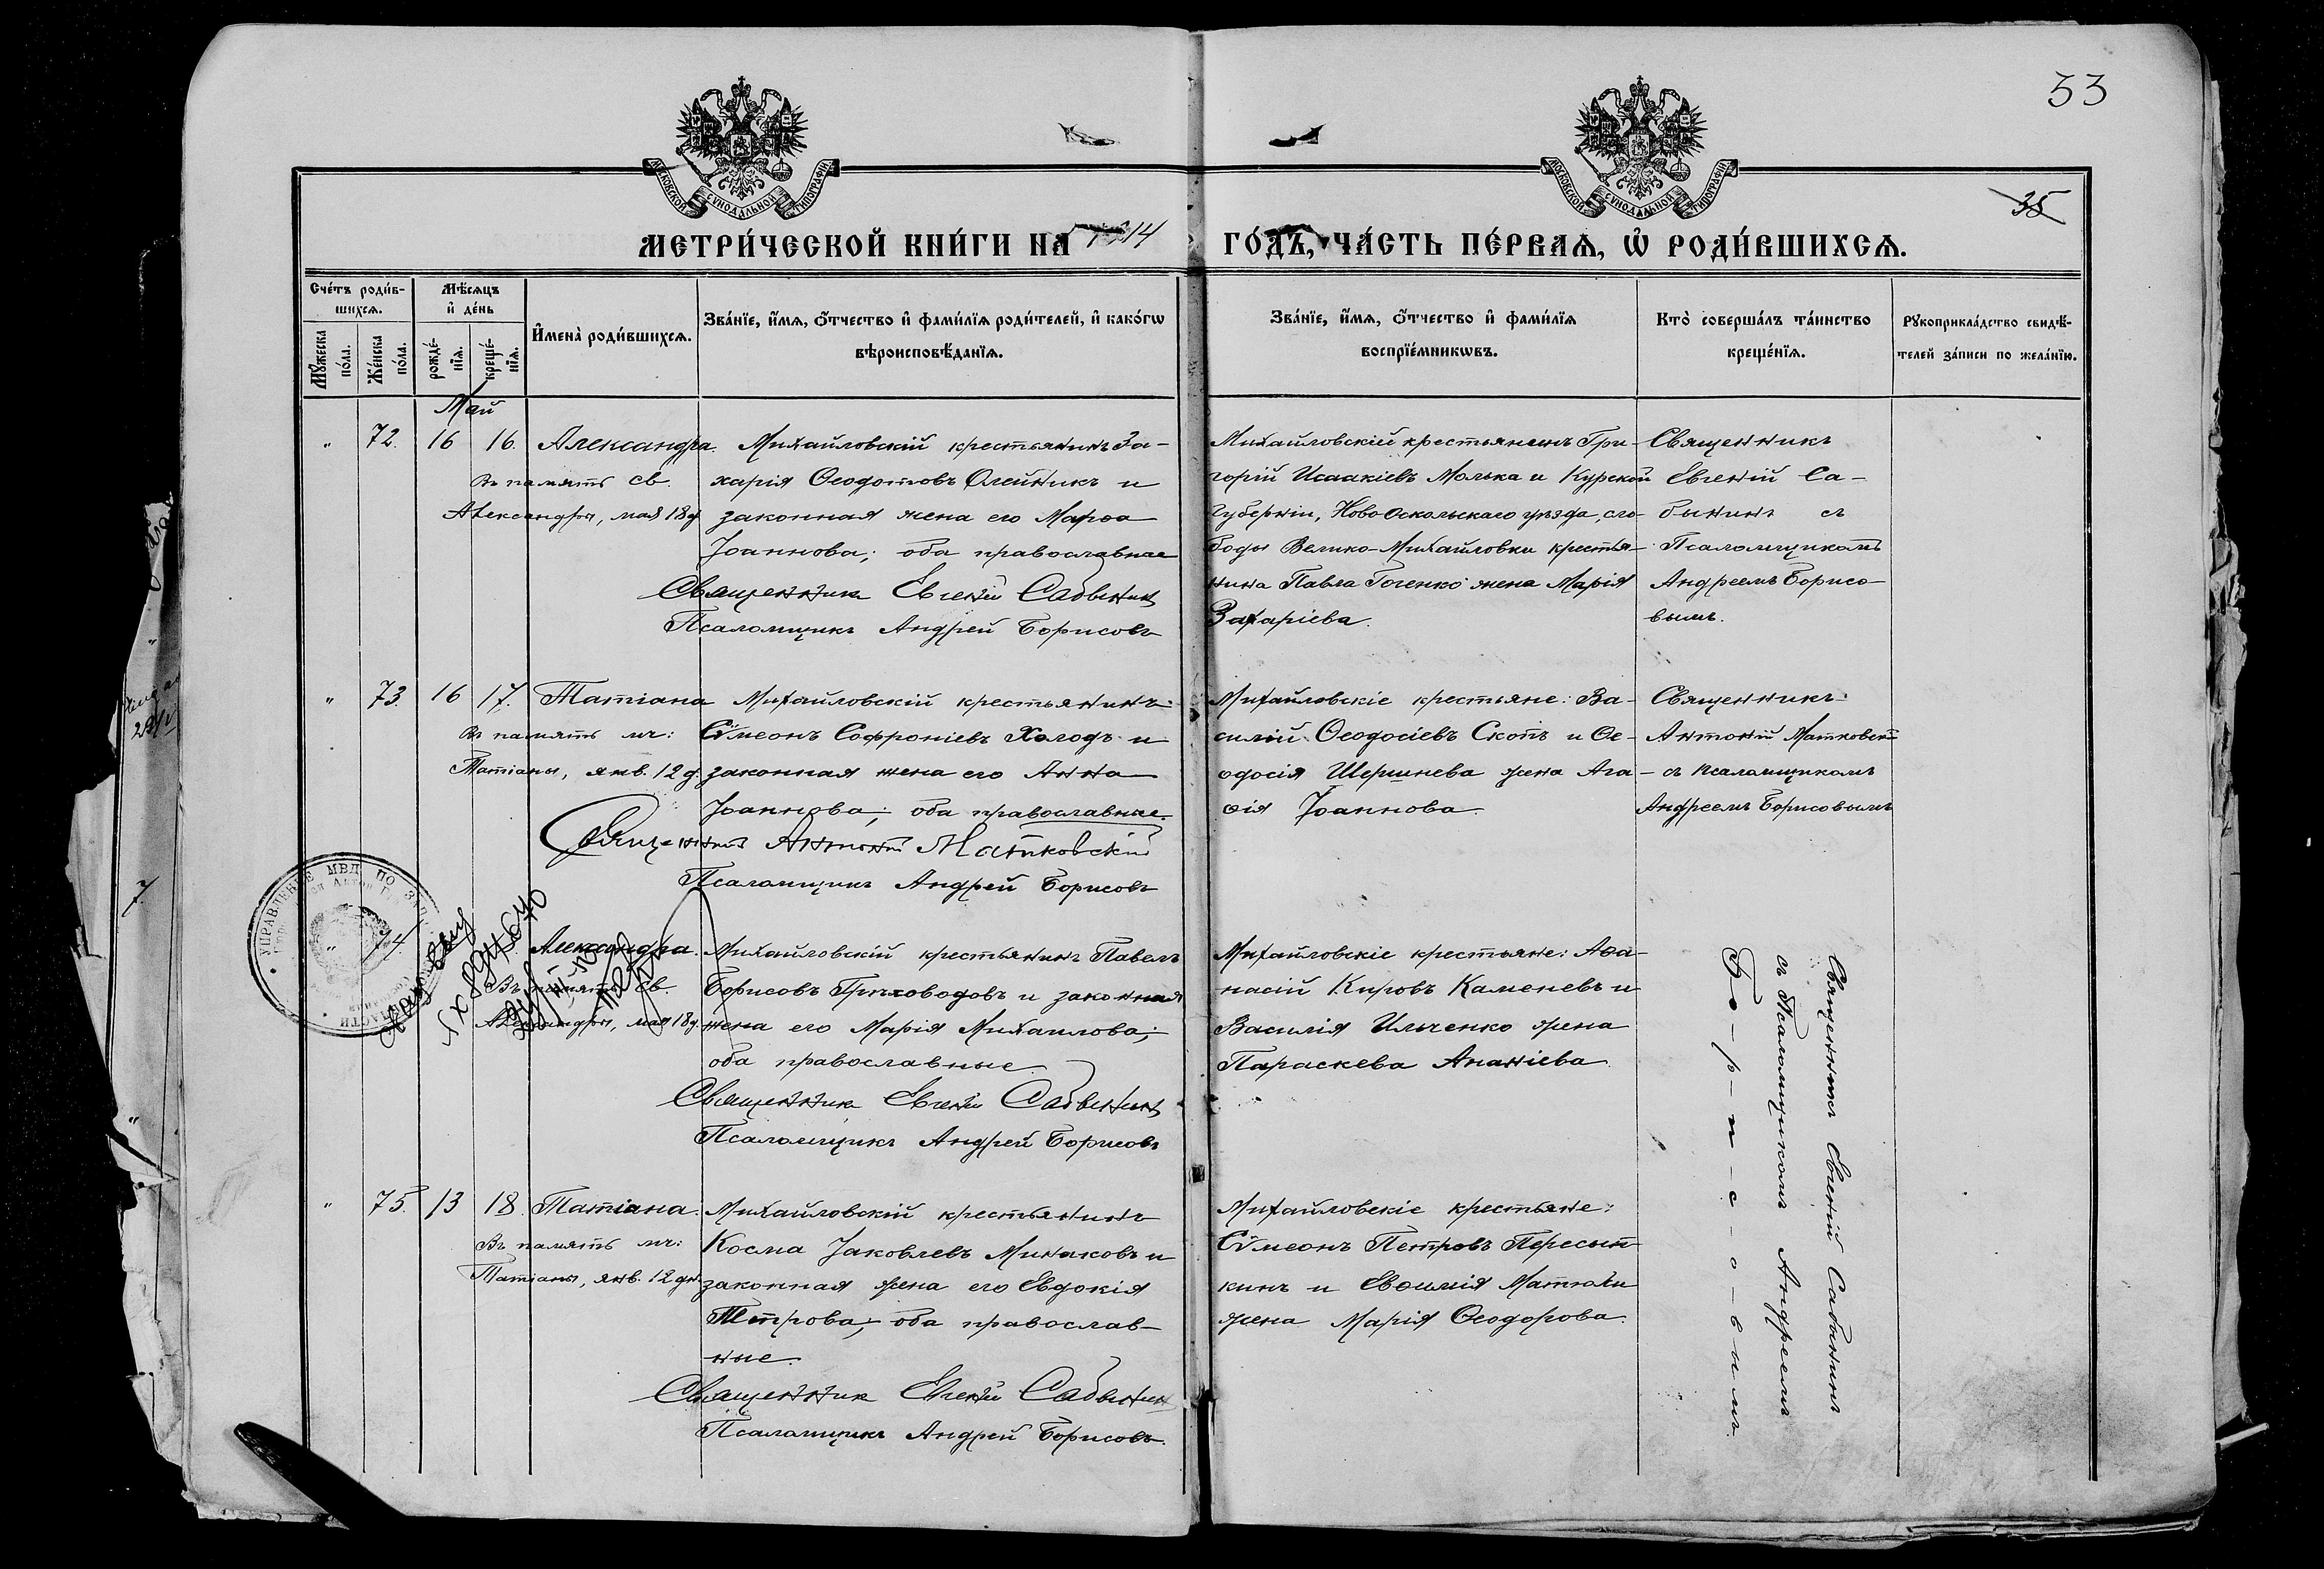 53
35
МОСКОВСКОЙ СѴНОДАЛЬНОЙ ТИПОГРАФІИ
МОСКОВСКОЙ СѴНОДАЛЬНОЙ ТИПОГРАФІИ
МЕТРИ́ЧЕСКОЙ КНИ́ГИ НА 1914 ГО́ДЪ, ЧА́СТЬ ПЕ́РВАѦ, Ѿ РОДИ́ВШИХСѦ.
Сче́тъ роди́в-
шихсѧ.
Мꙋ́жеска по́ла.
Же́нска по́ла.
Мѣ́сѧцъ и҆ де́нь
рожде́-нїѧ.
креще́-нїѧ.
И҆мена̀ роди́вшихсѧ.
Зва́нїе, и҆́мѧ, ѻ҆́тчество и҆ фами́лїѧ роди́телей, и҆ како́гѡ
вѣроисповѣ́данїѧ.
Зва́нїе, и҆́мѧ, ѻ҆́тчество и҆ фами́лїѧ
воспрїе́мникѡвъ.
Кто̀ соверша́лъ та́инство
креще́нїѧ.
Рꙋкоприкла́дство свидѣ́-
телей за́писи по жела́нїю.
Май
" 72. 16 16. Александра.
Въ память св.
Александры, мая 18 д.
Михайловскій крестьянинъ За-
харія Ѳеодотовъ Олейникъ и
законная жена его Марѳа
Іоаннова; оба православные
Священник Евгений Сабынин
Псаломщикъ Андрей Борисовъ
Михайловскій крестьянинъ Гри-
горій Исаакіевъ Молька и Курской
губерніи, Ново Оскольскаго уѣзда, сло-
боды Велико-Михайловки крестья-
нина Павла Гоченко жена Марія
Захаріева.
Священникъ
Евгеній Са-
бынинъ съ
Псаломщикомъ
Андреемъ Борисо-
вымъ.
" 73. 16 17. Татіана
Въ память мч:
Татіаны, янв. 12 д.
Михайловскій крестьянинъ
Сѵмеонъ Софроніевъ Холодъ и
законная жена его Анна
Іоаннова; оба православные.
Священникъ Антоній Матковскій
Псаломщикъ Андрей Борисовъ
Михайловскіе крестьяне: Ва-
силій Ѳеодосіевъ Скотъ и Ѳе-
одосія Шершнева жена Ага-
ѳія Іоаннова.
Священникъ
Антоній Матковскій
съ псаломщикомъ
Андреемъ Борисовымъ
УПРАВЛЕНИЕ МВД ПО
" 74. Александра.
Въ память св.
Александры, мая 18 д.
Михайловскій крестьянинъ Павелъ
Борисовъ Грыховодовъ и законная
жена его Марія Михаилова;
оба православные.
Священник Евгений Сабынин
Псаломщикъ Андрей Борисовъ
Михайловскіе крестьяне: Аѳа-
насій Кировъ Каменевъ и
Василія Ильченко жена
Параскева Ананіева.
Священникъ Евгеній Сабынинъ
съ Псаломщикомъ Андреемъ
Бо-р-и-с-о-вымъ.
" 75. 13 18. Татіана.
Въ память мч:
Татіаны, янв. 12 дн.
Михайловскій крестьянинъ
Косма Іаковлевъ Минаковъ и
законная жена его Евдокія
Петрова; оба православ-
ные.
Священник Евгений Сабынин
Псаломщикъ Андрей Борисовъ.
Михайловскіе крестьяне:
Сѵмеонъ Петровъ Пересып-
кинъ и Евѳимія Матюхи
жена Марія Ѳеодорова.